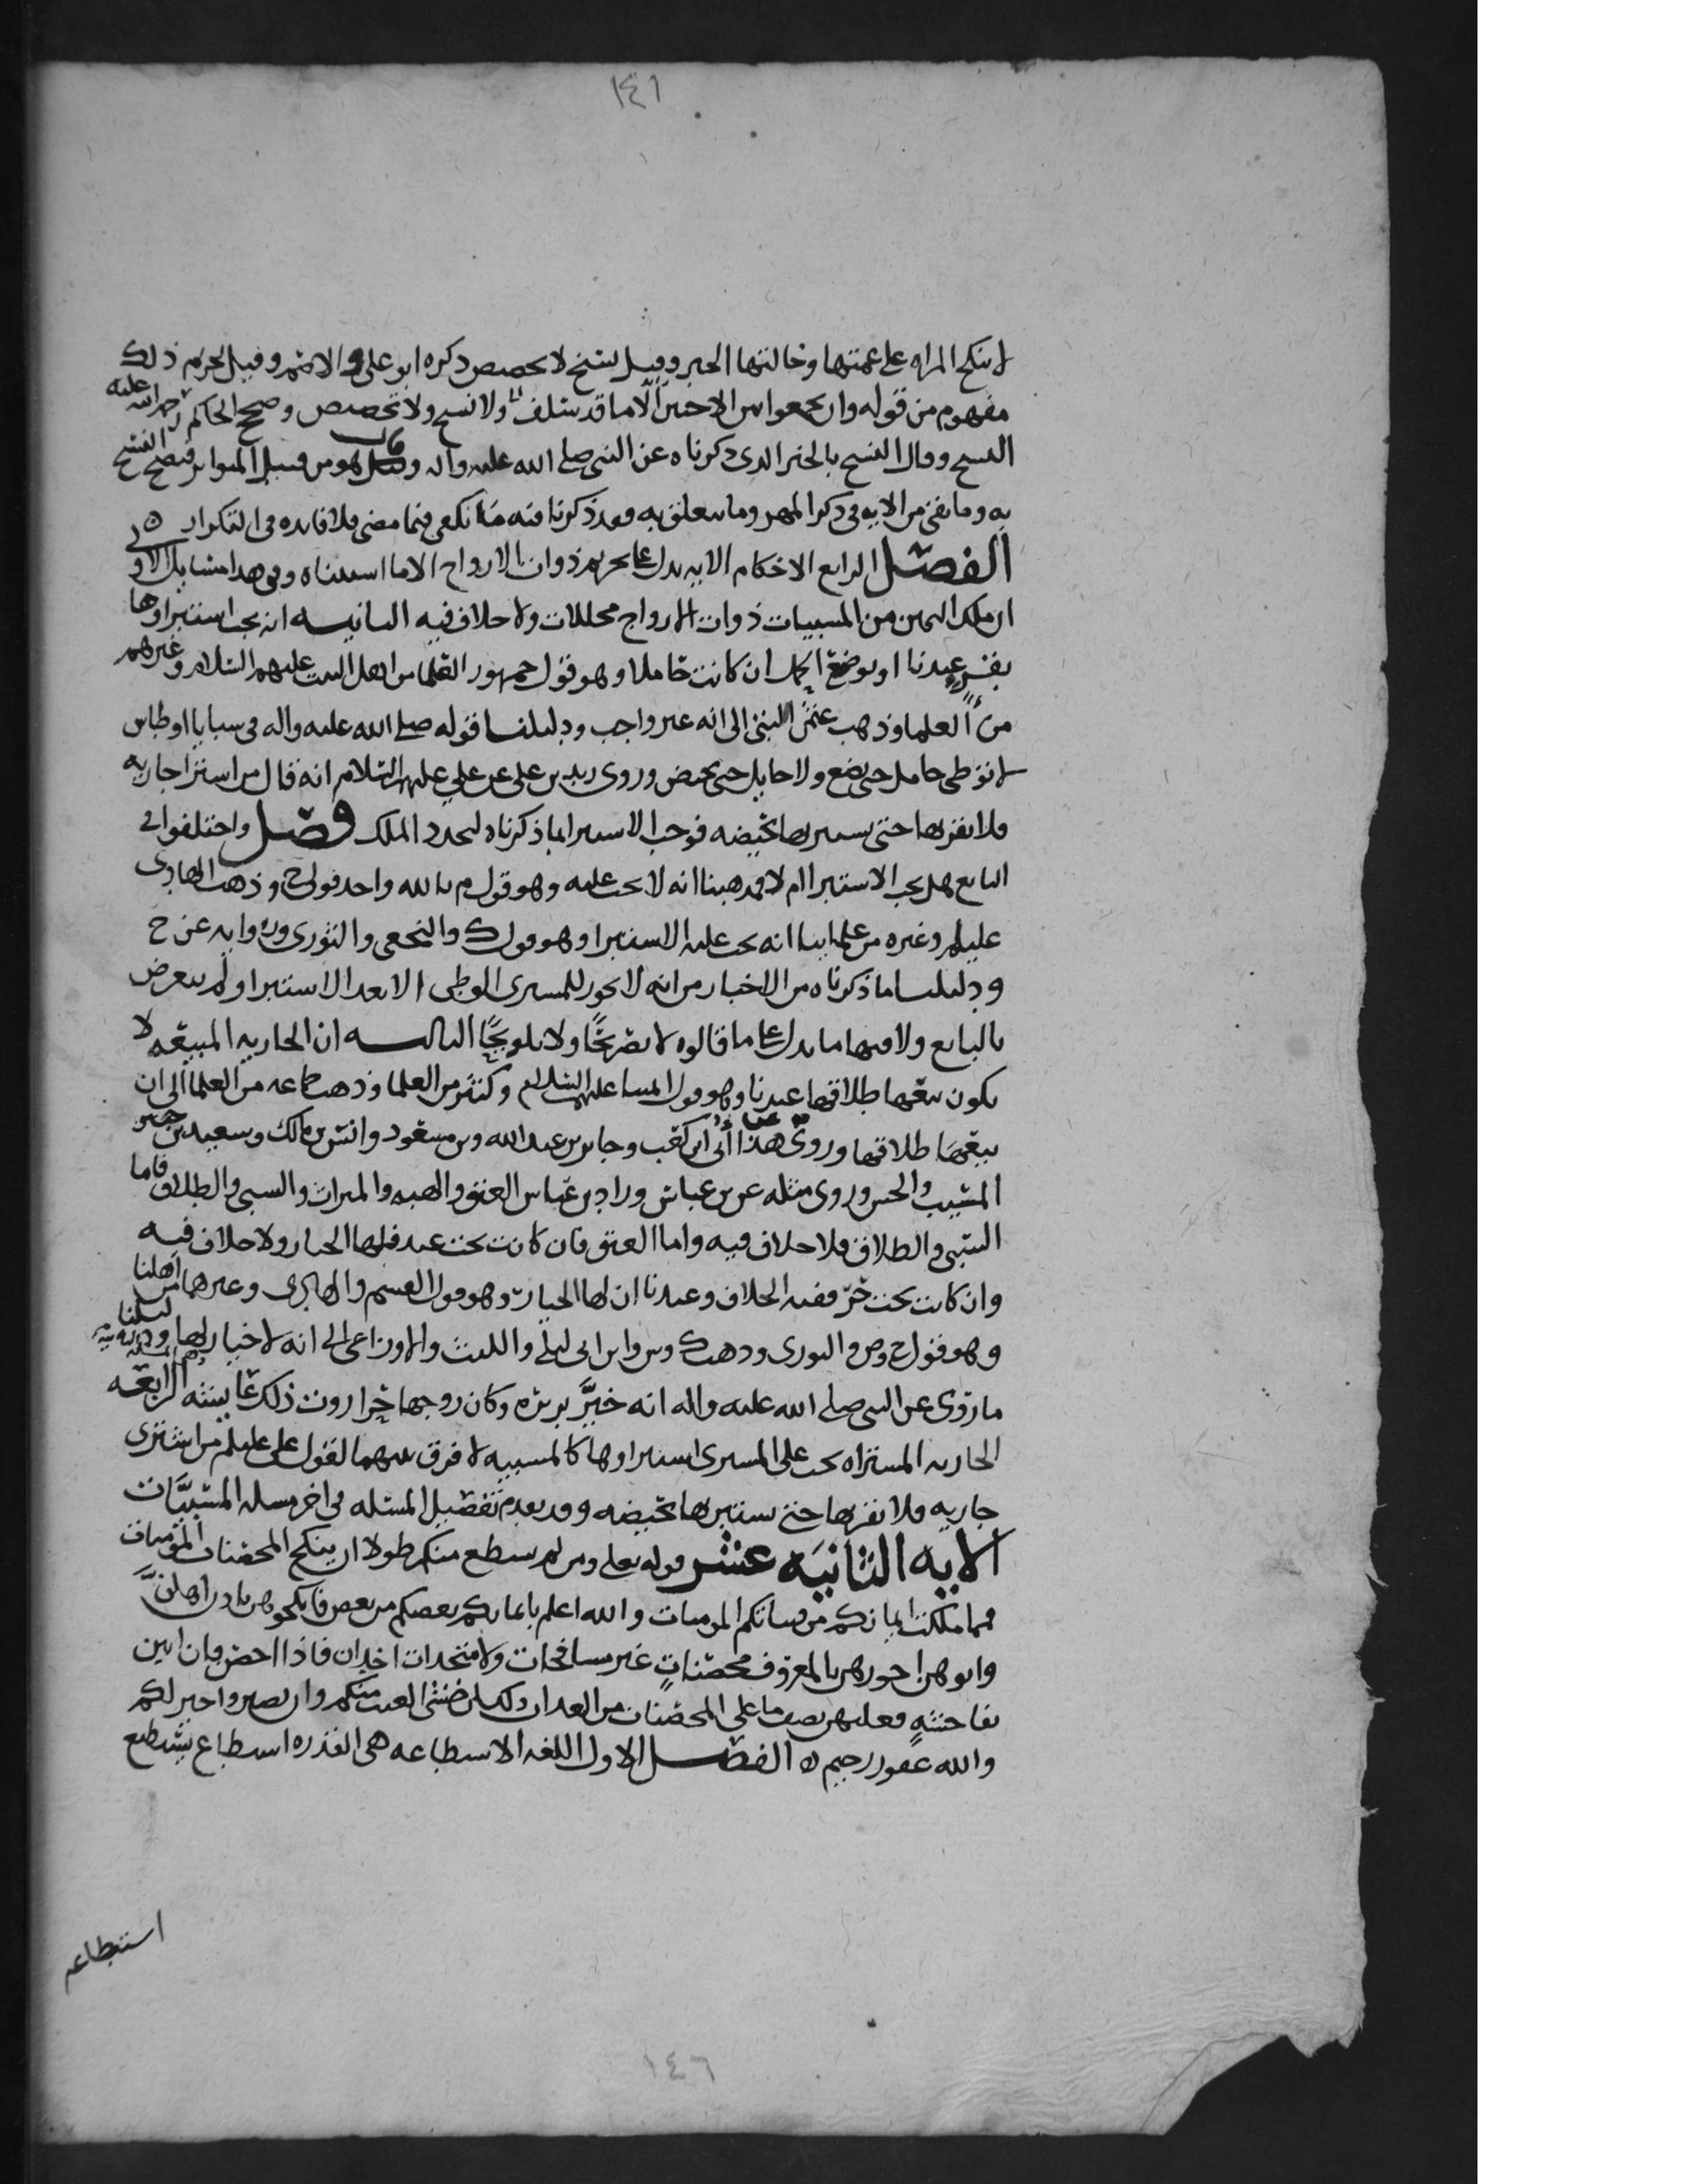 ١٤١
لا ينكح المراه على عمتها وخالتها الخبر وقيل نسخ لا تخصيص ذكره ابو علي والاصم وقيل تحريم ذلك
مفهوم من قوله وان تجمعوا بين الاختين الا ما قد سلف ولا نسخ ولا تخصيص وصحح الحاكم رحمه الله عليه
النسخ وقال النسخ بالخبر الذي ذكرناه عن النبي صلى الله عليه واله وقال هو من قبيل المتواتر فيصح النسخ
به وما بقي من الايه في ذكر المهر وما يتعلق به فقد ذكرنا فيه ما يكفي فيما مضى فلا فايده في التكرار ٥
الفصل الرابع الاحكام الايه تدل على تحريم ذوات الازواج الا ما استثناه وفي هذا مسايل الاولى
ان ملك اليمين من المسبيات ذوات الازواج محللات ولا خلاف فيه الثانيه انه يجب استبراوها
عندنا او بوضع الحمل ان كانت حاملا وهو قول جمهور العلما من اهل البيت عليهم السلام وغيرهم
من العلما وذهب عثمن البتي الى انه غير واجب ودليلنا قوله صلى الله عليه واله في سبايا اوطاس
لا توطى حامل حتى تضع ولا حايل حتى تحيض وروى زيد بن علي عن علي عليهم السلام انه قال من اشترا جاريه
فلا يقربها حتى يستبريها بحيضه فوجب الاستبرا لما ذكرناه لتجدد الملك فصل واختلفوا في
البايع هل يجب الاستبرا ام لا فمذهبنا انه لا يجب عليه وهو قول م بالله واحد قولي ح وذهب الهادي
عليلم وغيره من علماينا انه يجب عليه الاستبرا وهو قول ك والنخعي والثوري وروايه عن ح
ودليلنا ما ذكرناه من الاخبار من انه لا يجوز للمسترى الوطي الا بعد الاستبرا ولم يتعرض
بالبايع ولا فيها ما يدل على ما قالوه لا تصريحًا ولا تلويحًا الثالثه ان الجاريه المبيعه لا
يكون بيعها طلاقها عندنا وهو قول ايمتنا عليهم السلام وكثير من العلما وذهب جماعه من العلما الى ان
بيعها طلاقها وروى هذا عن أبي ابن كعب وجابر بن عبد الله وبن مسعود وانس بن مالك وسعيد بن جبير
المسيب والحسن وروى مثله عن بن عباس وزاد بن عباس العتق والهبه والميراث والسبي والطلاق فاما
السبي والطلاق فلا خلاف فيه واما العتق فان كانت تحت عبد فلها الخيار ولا خلاف فيه
وان كانت تحت حرّ ففيه الخلاف وعندنا ان لها الخيار وهو قول القسم والهادي وغيرهما من اهلنا
وهو قول ح وص والثوري وذهب ك وس وابن ابي ليلى والليث والاوزاعي الى انه لا خيار لها ودليلنا
ما روى عن النبي صلى الله عليه واله انه خيَّر بريره وكان زوجها حرا روت ذلك عايشه المسله الرابعه
الجاريه المشتراه يجب على المسترى استبراوها كالمسبيه لا فرق بينهما لقول علي عليلم من اشترى
جاريه فلا يقربها حتى يستبريها بحيضه وقد تقدم تفصيل المسئله في اخر مسله المسبيَّات
الايه الثانيه عشر قوله تعلى ومن لم يستطع منكم طولا ان ينكح المحصنات المؤمنات
فمما ملكت ايمانكم من فتياتكم المومنات والله اعلم بايمانكم بعضكم من بعض فانكحوهن باذن اهلهنَّ
واتوهن اجورهن بالمعروف محصناتٍ غير مسافحات ولا متخدات اخدان فاذا احصن فان اتين
بفاحشهٍ فعليهن نصف ما على المحصنات من العذاب ذلك لمن خشى العنت منكم وان تصبروا خير لكم
والله غفور رحيم ٥ الفصل الاول اللغه الاستطاعه هي القدره استطاع يستطيع
استطاعه
١٤٦